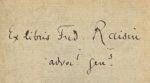 Ex libris Fred Raisin
advo.t gen.s